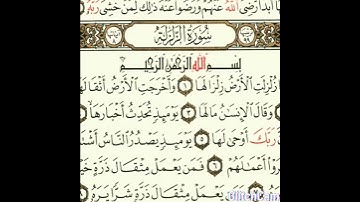 أبدا رضي الله عنهم ورضوا عنه ذلك لمن خشي ربه
سورة الزلزلة
بسم الله الرحمن الرحيم
زلزلت الأرض زلزالها ١ وأخرجت الأرض أثقالها
وقال الإنسان ما لها ٣ يومئذ تحدث أخبارها
ربك أوحى لها ٥ يومئذ يصدر الناس أشتا
روا أعمالهم ٦ فمن يعمل مثقال ذرة خي
يعمل مثقال ذرة شرا يره